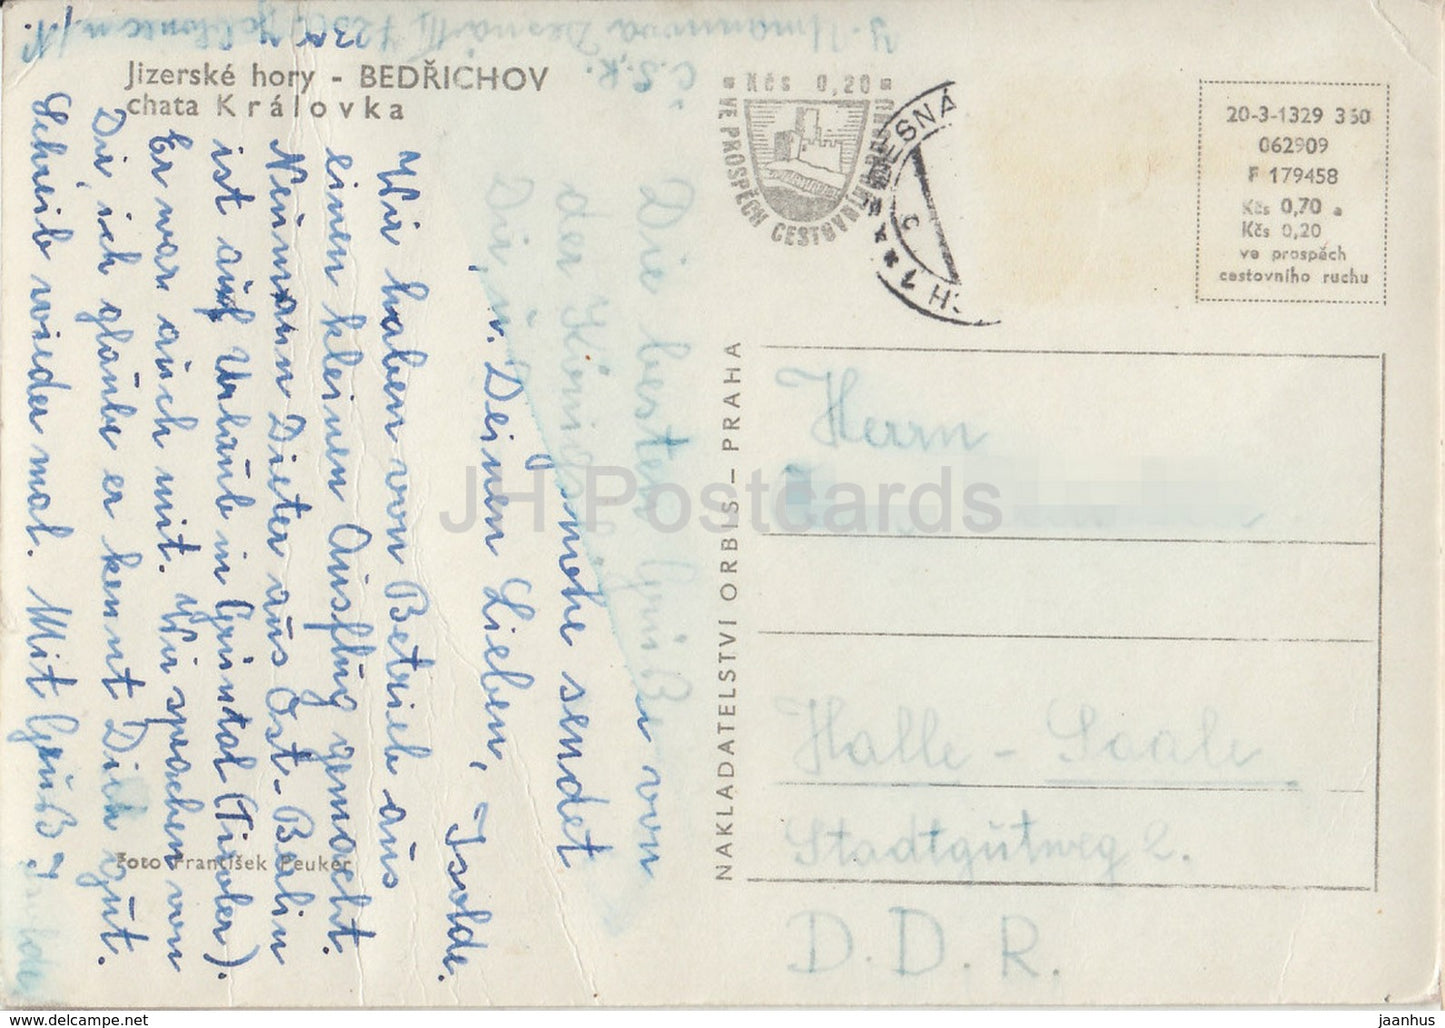 Jizerské hory - BEDŘICHOV
chata Královka
Desná III
Č.S.R.
Die besten Grüße von
der Königshöhe sendet
Dir, u. Deinen Lieben,
Isolde.
Wir haben von Betrieb aus
einen kleinen Ausflug gemacht.
Neumann Dieter aus Ost-Berlin
ist auf Urlaub in Grüntal (Tiroler).
Er war auch mit. Wir sprachen von
Dir, ich glaube er kennt Dich gut.
Schreib wieder mal. Mit Gruß Isolde
Foto František Peuker
Kčs 0,20
VE PROSPĚCH CESTOVNÍHO RUCHU
DESNÁ
NAKLADATELSTVÍ ORBIS - PRAHA
20-3-1329 360
062909
F 179458
Kčs 0,70 a
Kčs 0,20
ve prospěch
cestovního ruchu
Herrn
Halle - Saale
Stadtgutweg 2.
D.D.R.
JH Postcards
www.delcampe.net
jaanhus